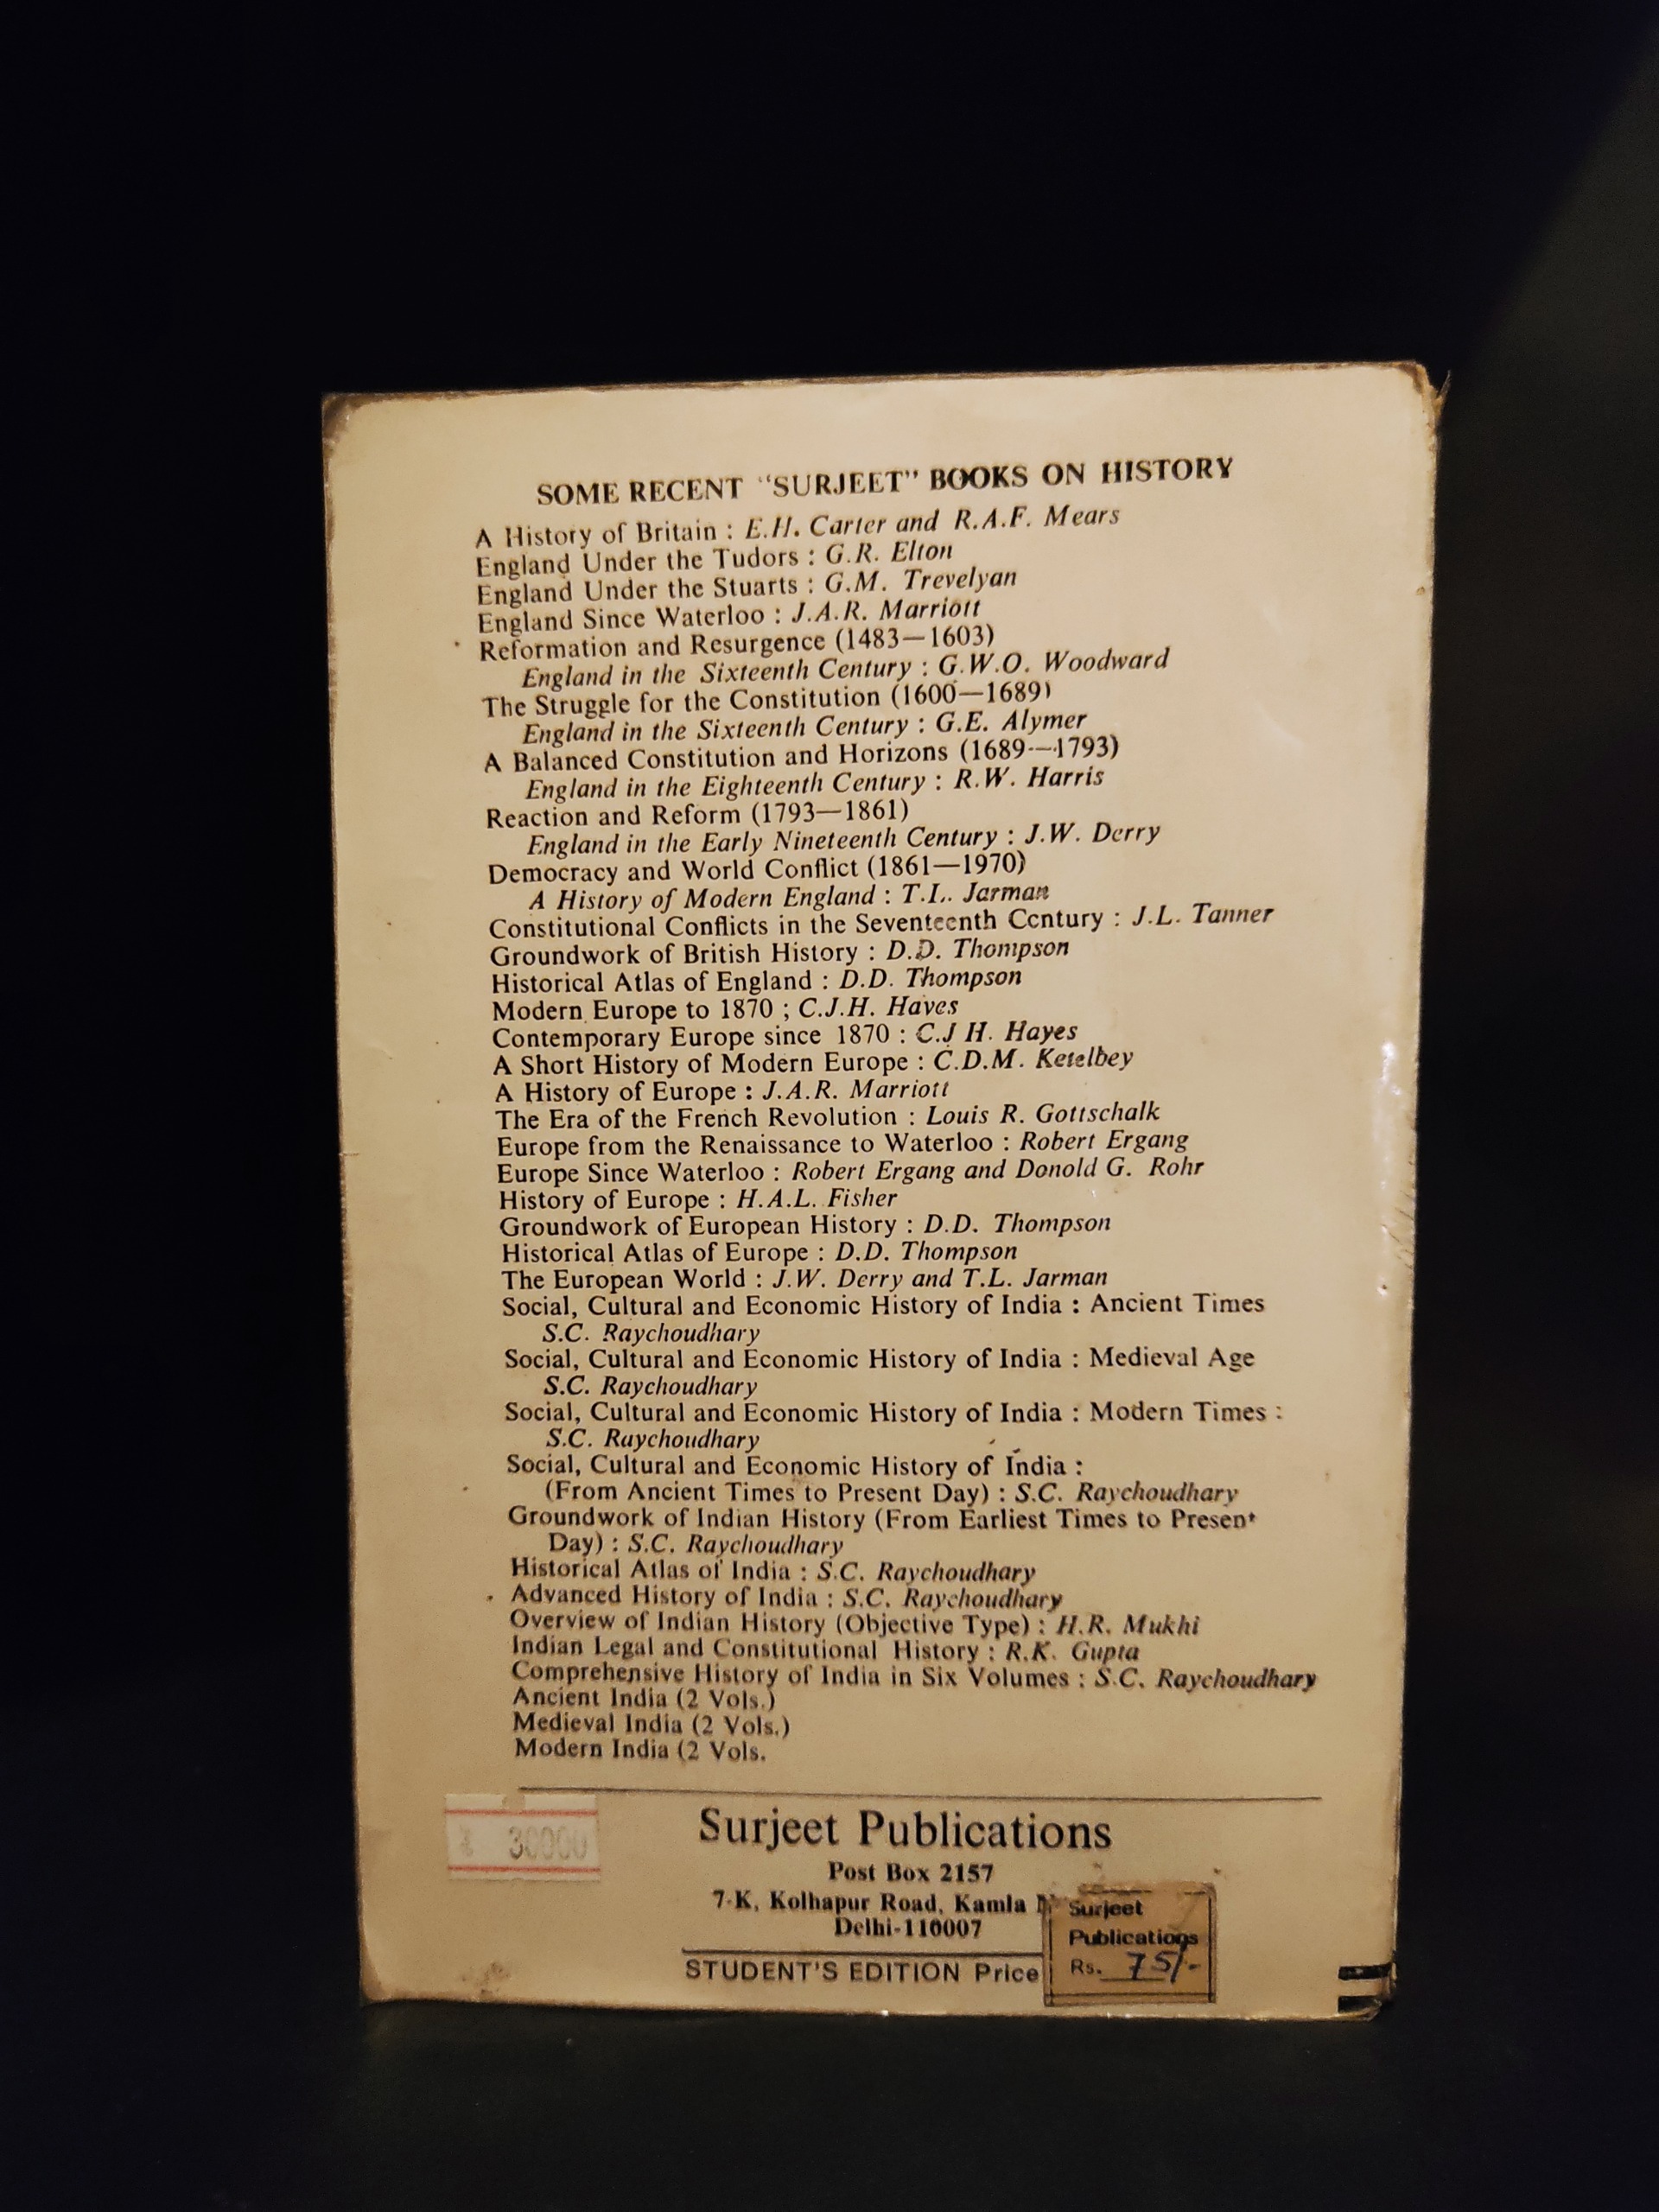 SOME RECENT "SURJEET" BOOKS ON HISTORY
A History of Britain : E.H. Carter and R.A.F. Mears
England Under the Tudors : G.R. Elton
England Under the Stuarts : G.M. Trevelyan
England Since Waterloo : J.A.R. Marriott
Reformation and Resurgence (1483—1603)
England in the Sixteenth Century : G.W.O. Woodward
The Struggle for the Constitution (1600—1689)
England in the Sixteenth Century : G.E. Alymer
A Balanced Constitution and Horizons (1689—1793)
England in the Eighteenth Century : R.W. Harris
Reaction and Reform (1793—1861)
England in the Early Nineteenth Century : J.W. Derry
Democracy and World Conflict (1861—1970)
A History of Modern England : T.L. Jarman
Constitutional Conflicts in the Seventeenth Century : J.L. Tanner
Groundwork of British History : D.D. Thompson
Historical Atlas of England : D.D. Thompson
Modern Europe to 1870 ; C.J.H. Haves
Contemporary Europe since 1870 : C.J H. Hayes
A Short History of Modern Europe : C.D.M. Ketelbey
A History of Europe : J.A.R. Marriott
The Era of the French Revolution : Louis R. Gottschalk
Europe from the Renaissance to Waterloo : Robert Ergang
Europe Since Waterloo : Robert Ergang and Donold G. Rohr
History of Europe : H.A.L. Fisher
Groundwork of European History : D.D. Thompson
Historical Atlas of Europe : D.D. Thompson
The European World : J.W. Derry and T.L. Jarman
Social, Cultural and Economic History of India : Ancient Times
S.C. Raychoudhary
Social, Cultural and Economic History of India : Medieval Age
S.C. Raychoudhary
Social, Cultural and Economic History of India : Modern Times :
S.C. Raychoudhary
Social, Cultural and Economic History of India :
(From Ancient Times to Present Day) : S.C. Raychoudhary
Groundwork of Indian History (From Earliest Times to Present
Day) : S.C. Raychoudhary
Historical Atlas of India : S.C. Raychoudhary
Advanced History of India : S.C. Raychoudhary
Overview of Indian History (Objective Type) : H.R. Mukhi
Indian Legal and Constitutional History : R.K. Gupta
Comprehensive History of India in Six Volumes : S.C. Raychoudhary
Ancient India (2 Vols.)
Medieval India (2 Vols.)
Modern India (2 Vols.
30000
Surjeet Publications
Post Box 2157
7-K, Kolhapur Road, Kamla
Delhi-110007
STUDENT'S EDITION Price
Surjeet
Publications
Rs. 75/-